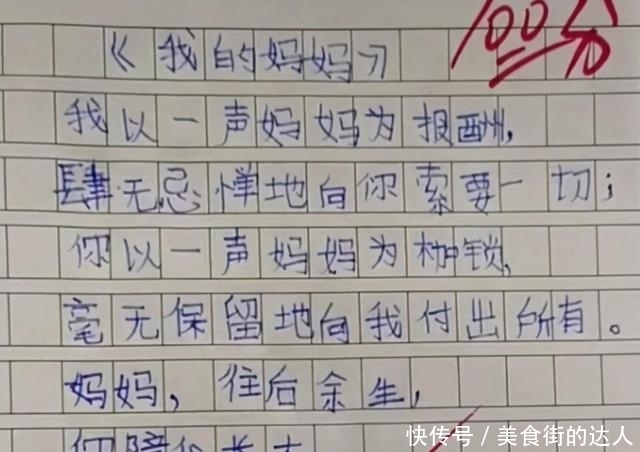 100分
《我的妈妈》
我以一声妈妈为报酬,
肆无忌惮地向你索要一切;
你以一声妈妈为枷锁,
毫无保留地向我付出所有。
妈妈,往后余生,
快传号/美食街的达人